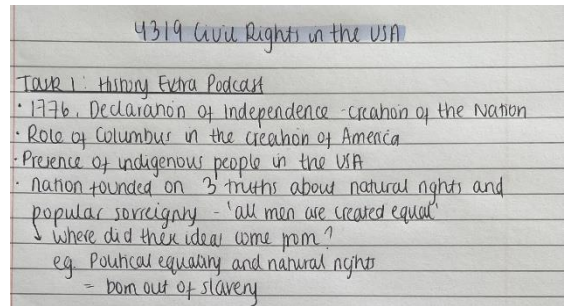 4319 Civil Rights in the USA
Task 1: History Extra Podcast
• 1776, Declaration of Independence - creation of the Nation
• Role of Columbus in the creation of America
• Presence of indigenous people in the USA
• nation founded on 3 truths about natural rights and
popular sovreignty - 'all men are created equal'
↓ where did these ideas come from?
eg. Political equality and natural rights
= born out of slavery